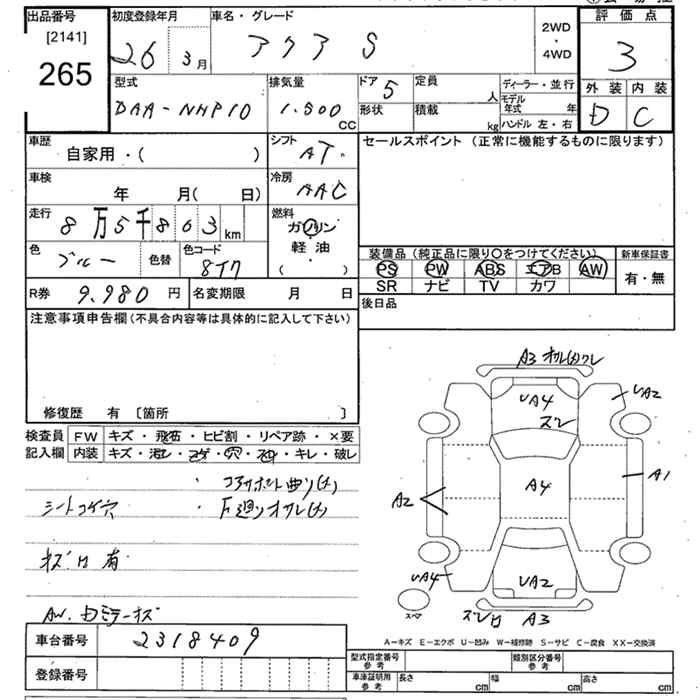 出品番号 初度登録年月 車名・グレード 評価点
[2141] 26 3月 アクア S 2WD・4WD 3
265
型式 排気量 ドア 5 定員 人 ディーラー・並行 外装 内装
DAA-NHP10 1.500 CC 形状 積載 kg モデル年式 年 D C
ハンドル 左・右
車歴 シフト セールスポイント (正常に機能するものに限ります)
自家用・( ) AT
車検 年 月(日) 冷房 AAC
走行 8万5千803km 燃料 ガソリン
軽油
( )
色 ブルー 色替 色コード 8T7
装備品 (純正品に限り○をつけてください) 新車保証書
PS PW ABS エアB AW 有・無
SR ナビ TV カワ
R券 9.980 円 名変期限 月 日 後日品
注意事項申告欄 (不具合内容等は具体的に記入して下さい)
修復歴 有 [箇所 ]
検査員 FW キズ・飛石・ヒビ割・リペア跡・×要
記入欄 内装 キズ・汚レ・コゲ・穴・スレ・キレ・破レ
コアサポート曲り(大)
シートコゲ穴 下廻りオフレ(大)
キズ凹有
AW.Dミラーキズ
車台番号 2318409
登録番号
A3
UA4
ズレ
UA2
A2
A4
A1
UA4
UA2
スペア
A3
A-キズ E-エクボ U-凹み W-補修跡 S-サビ C-腐食 XX-交換済
型式指定番号 参考 類別区分番号 参考
車庫証明用 参考 長さ cm 幅 cm 高さ cm